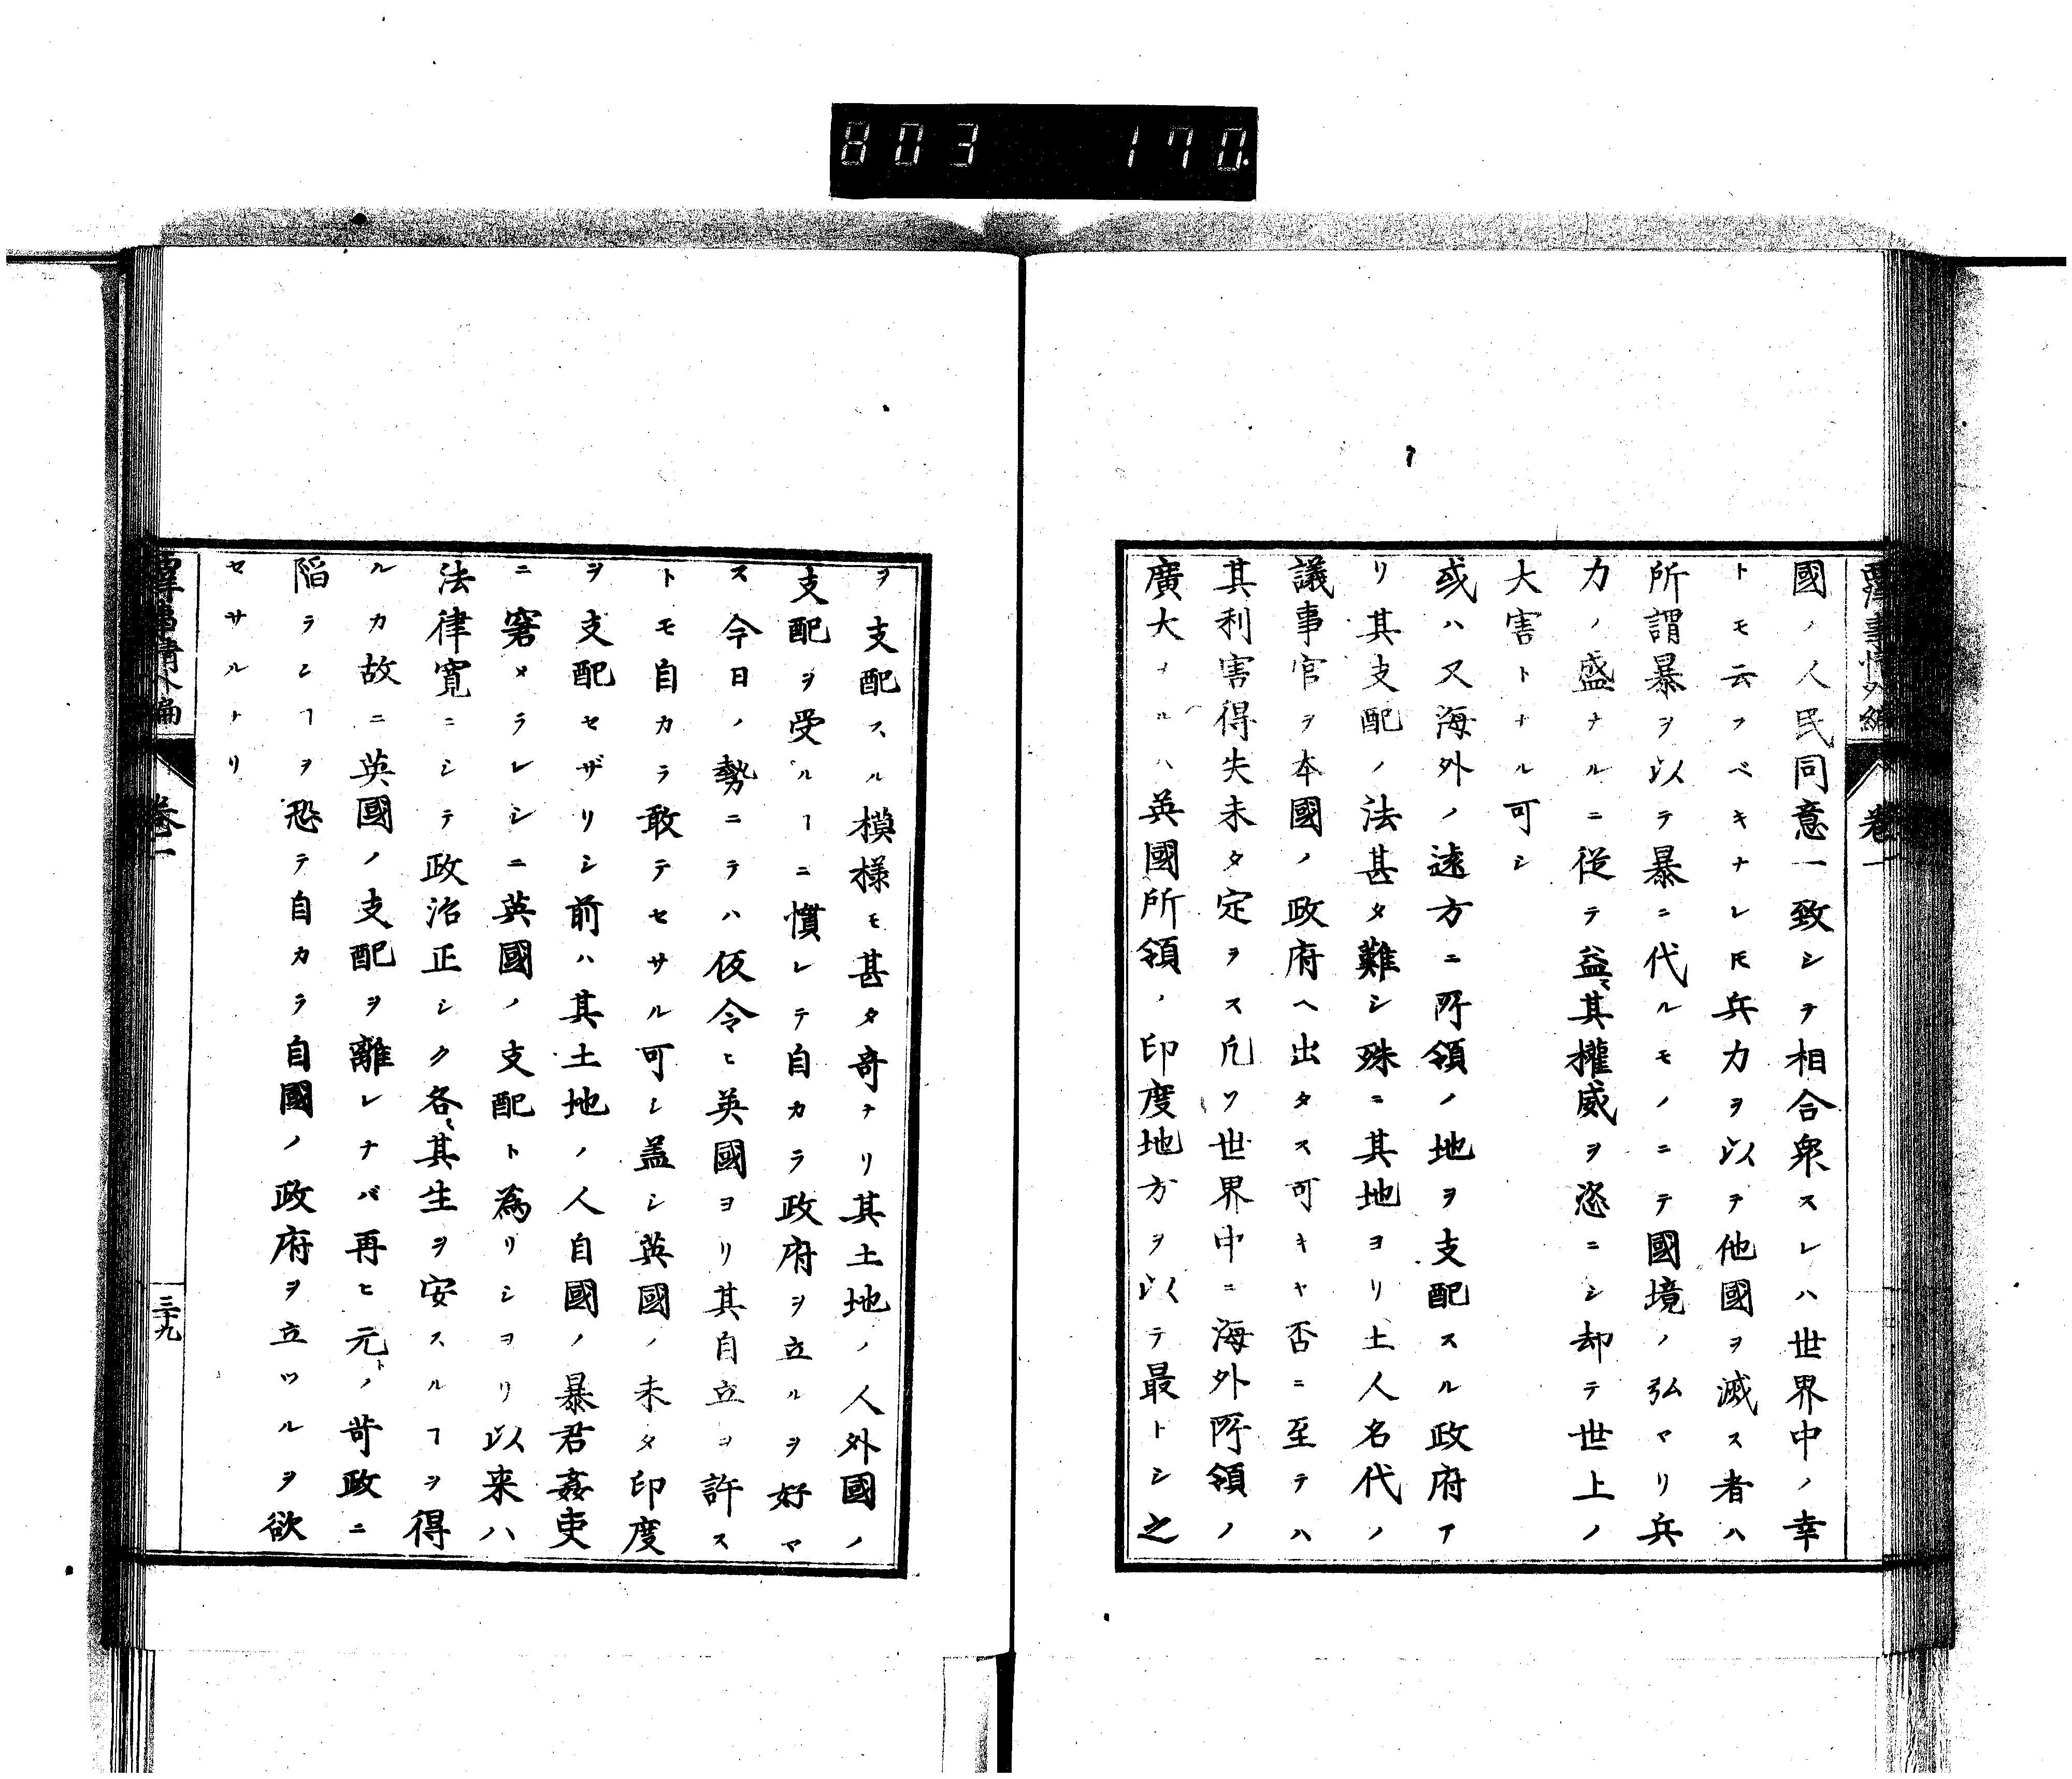 803 170.
西洋事情外編 巻一
國ノ人民同意一致シテ相合衆スレハ世界中ノ幸
トモ云フベキナレ𪜈兵力ヲ以テ他國ヲ滅ス者ハ
所謂暴ヲ以テ暴ニ代ルモノニテ國境ノ弘マリ兵
力ノ盛ナルニ從テ益〻其權威ヲ恣ニシ却テ世上ノ
大害トナル可シ
或ハ又海外ノ遠方ニ所領ノ地ヲ支配スル政府ア
リ其支配ノ法甚タ難シ殊ニ其地ヨリ土人名代ノ
議事官ヲ本國ノ政府ヘ出タス可キヤ否ニ至テハ
其利害得失未タ定ヲス凡ソ世界中ニ海外所領ノ
廣大ナルハ英國所領ノ印度地方ヲ以テ最トシ之
ヲ支配スル模様モ甚タ奇ナリ其土地ノ人外國ノ
支配ヲ受ルヿニ慣レテ自カラ政府ヲ立ルヲ好マ
ス今日ノ勢ニテハ仮令ヒ英國ヨリ其自立ヲ許ス
トモ自カラ敢テセサル可シ盖シ英國ノ未タ印度
ヲ支配セザリシ前ハ其土地ノ人自國ノ暴君姦吏
ニ窘メラレシニ英國ノ支配ト為リシヨリ以来ハ
法律寛ニシテ政治正シク各〻其生ヲ安スルヿヲ得
ルカ故ニ英國ノ支配ヲ離レナバ再ヒ元トノ苛政ニ
陥ランヿヲ恐テ自カラ自國ノ政府ヲ立ツルヲ欲
セサルナリ
西洋事情外編 巻一 三十九